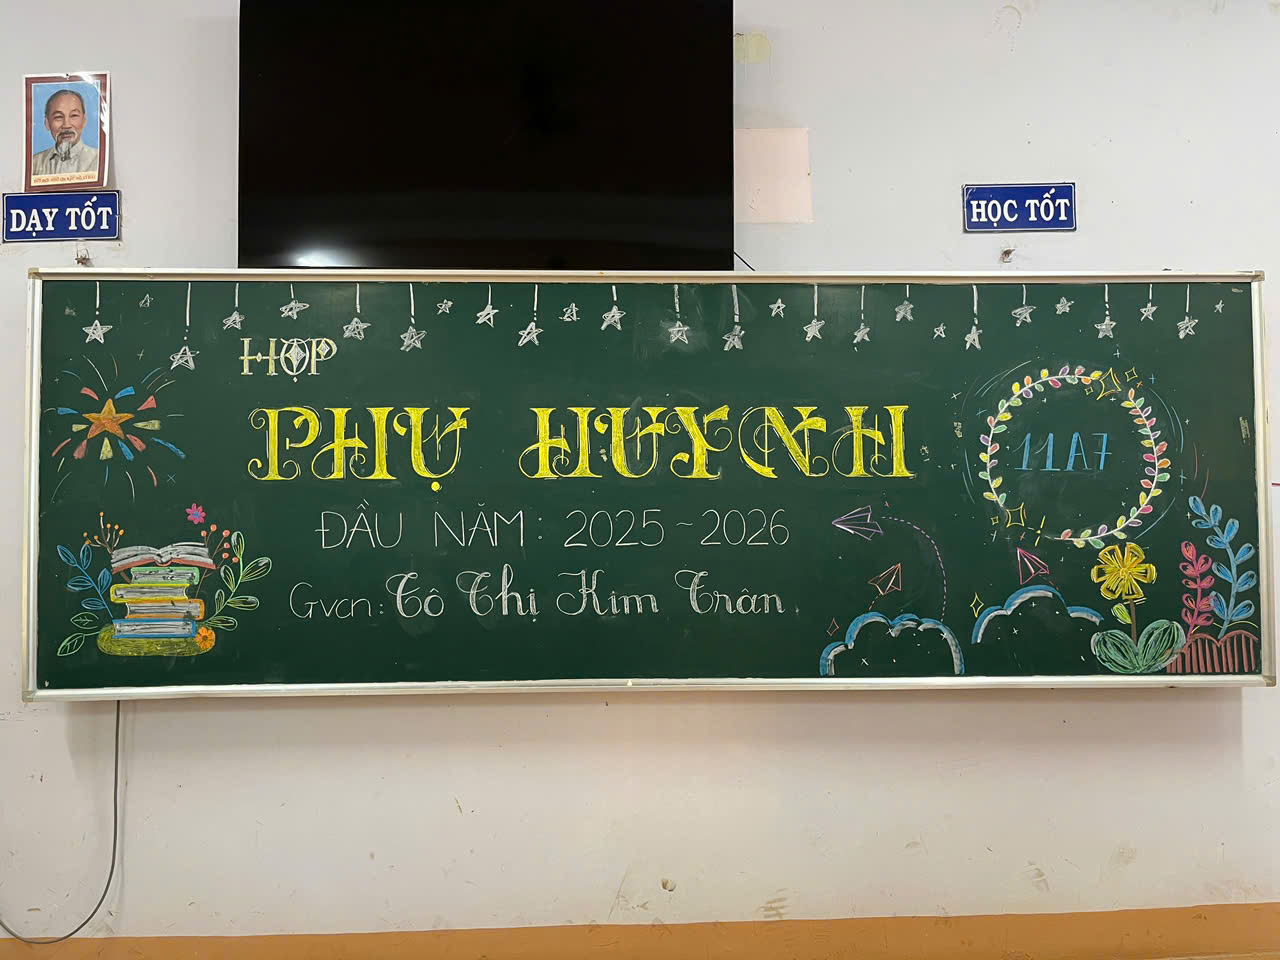 DẠY TỐT
HỌC TỐT
HỌP
PHỤ HUYNH
11A7
ĐẦU NĂM: 2025 ~ 2026
Gvcn: Tô Thị Kim Trân.